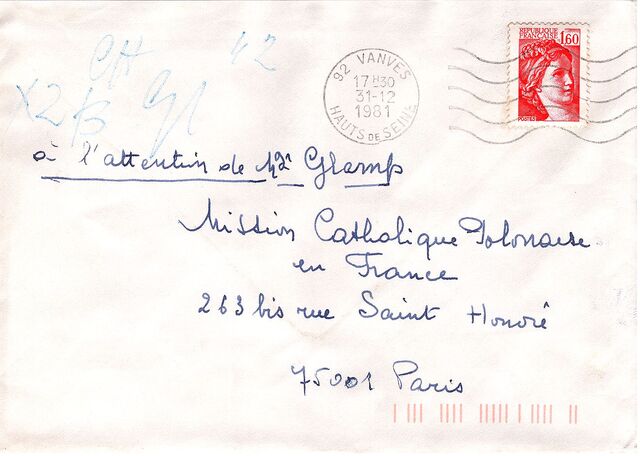 CH 42
X2B Gl
REPUBLIQUE
FRANÇAISE
1,60
POSTES
92 VANVES
17H30
31-12
1981
HAUTS DE SEINE
à l'attention de
Mission Catholique Polonaise
en France
263 bis rue Saint Honoré
75001 Paris